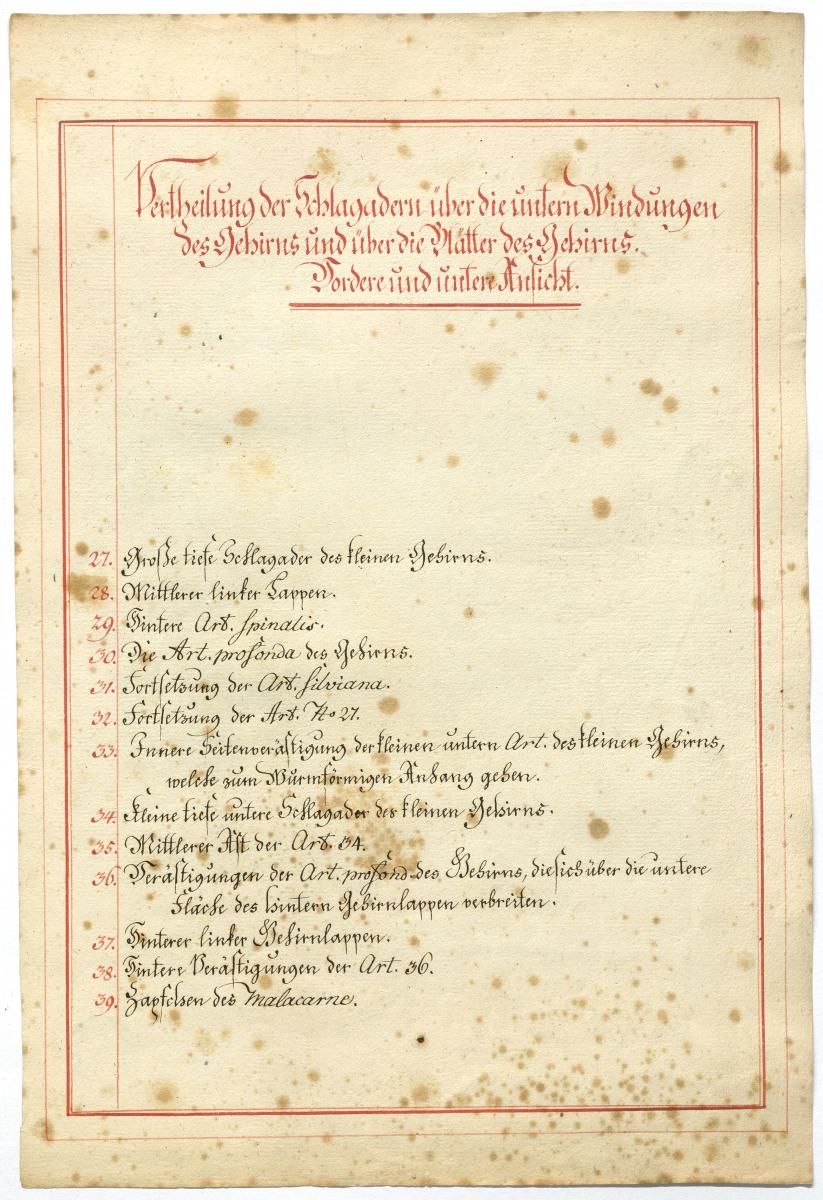 Vertheilung der Schlagadern über die untern Windungen
des Gehirns und über die Blätter des Gehirns.
Vordere und untere Ansicht.
27. Große tiefe Schlagader des kleinen Gehirns.
28. Mittlerer linker Lappen.
29. Hintere Art. spinalis.
30. Die Art. profonda des Gehirns.
31. Fortsetzung der Art. silviana.
32. Fortsetzung der Art. No 27.
33. Innere Seitenverästigung der kleinen untern Art. des kleinen Gehirns,
welche zum Wurmförmigen Anhang gehen.
34. Kleine tiefe untere Schlagader des kleinen Gehirns.
35. Mittlerer Ast der Art. 34.
36. Verästigungen der Art. profond. des Gehirns, die sich über die untere
Fläche des hintern Gehirnlappen verbreiten.
37. Hinterer linker Gehirnlappen.
38. Hintere Verästigungen der Art. 36.
39. Zapfchen des Malacarne.